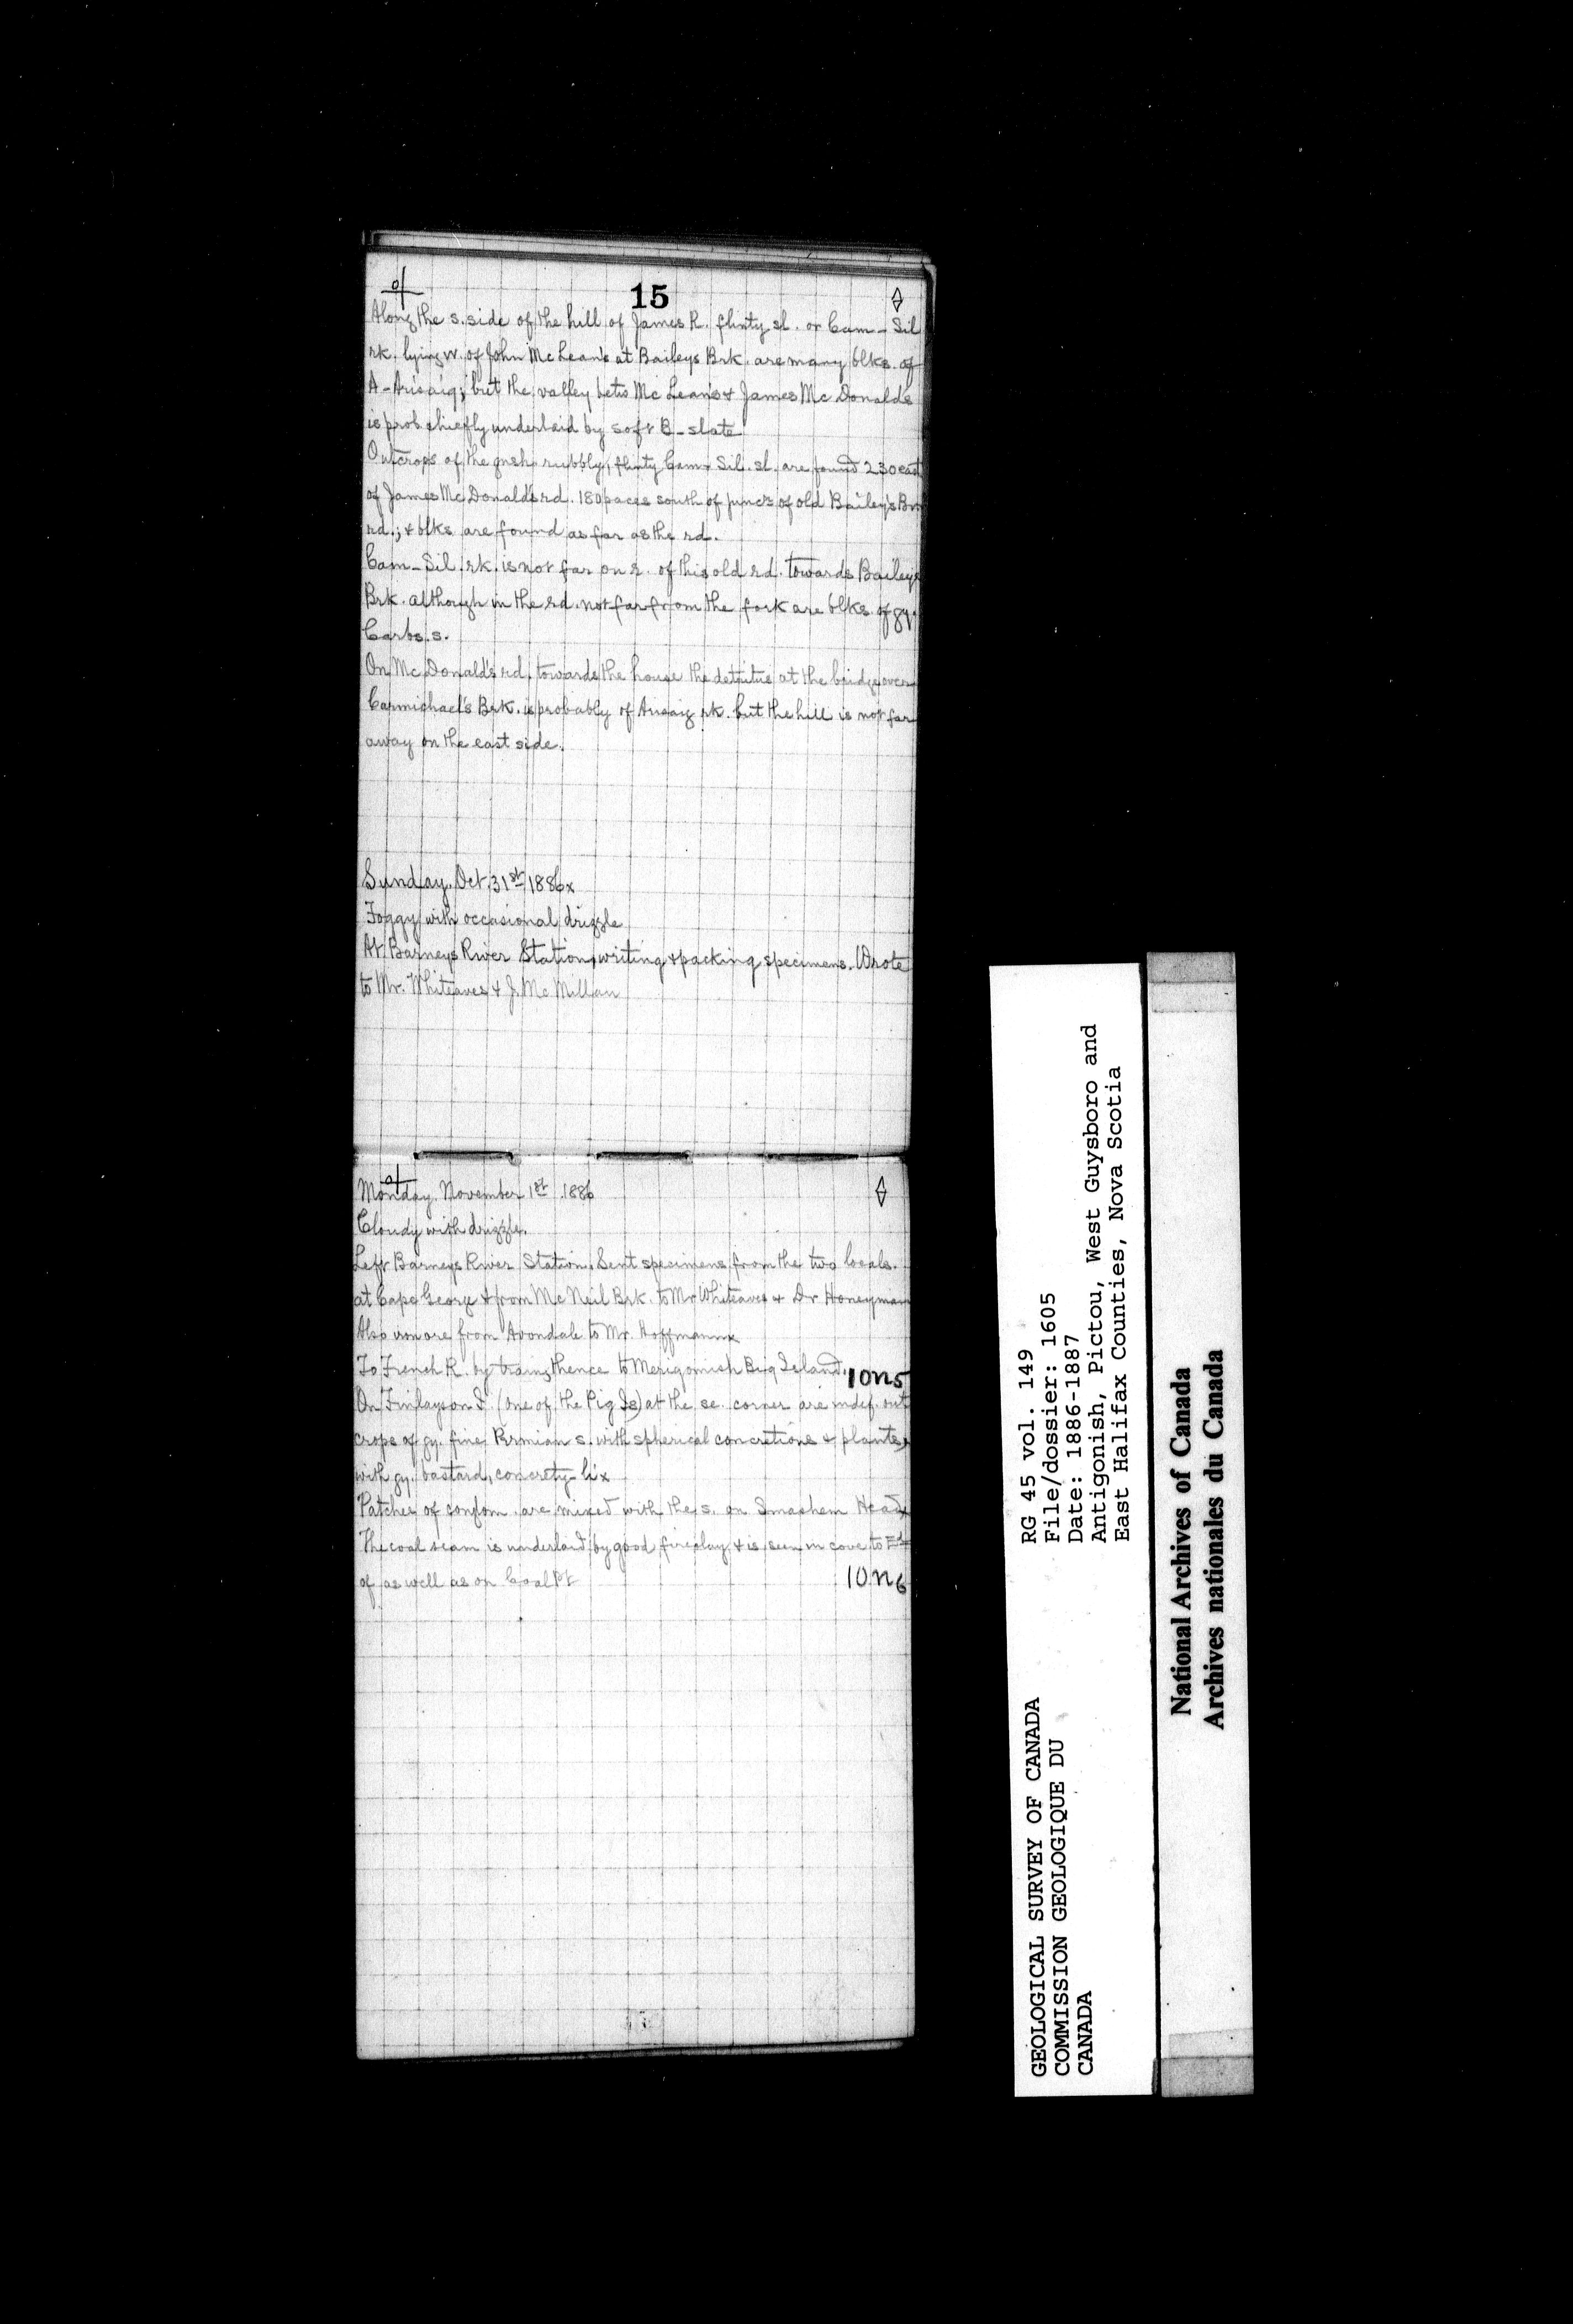 15
Along the s. side of the hill of James R. flinty sl. or Cam-Sil
rk. lying w. of John McLean's at Baileys Brk. are many blks. of
A-Arisaig; but the valley betw McLean's & James McDonalds
is prob. chiefly underlaid by soft B-slate
Outcrops of the gnsh. rubbly, flinty Cam-Sil. sl. are found 230 east
of James McDonald's rd. 180 paces south of junc. of old Bailey's Brk
rd.; & blks are found as far as the rd.
Cam-Sil. rk. is not far on r. of this old rd. towards Baileys
Brk. although in the rd. not far from the fork are blks. of gy.
Carbs. s.
On McDonald's rd. towards the house the detritus at the bridge over
Carmichael's Brk. is probably of Arisaig rk. but the hill is not far
away on the east side.
Sunday. Oct. 31st 1886x
Foggy with occasional drizzle
At Barneys River Station, writing & packing specimens. Wrote
to Mr. Whiteaves & J. McMillan
Monday. November 1st 1886
Cloudy with drizzle.
Left Barneys River Station. Sent specimens from the two locals.
at Cape George & from McNeil Brk. to Mr Whiteaves & Dr Honeyman
Also iron ore from Avondale to Mr. Hoffmannx
To French R. by train; thence to Merigomish Big Island. 10n5
On Finlayson I. (one of the Pig Is) at the se. corner are indef. out
crops of gy. fine Permian s. with spherical concretions & plants,
with gy. bastard, concrety-lix
Patches of conglom. are mixed with the s. on Smashem Headx
The coal seam is underlaid by good fireclay & is seen in cove to
of as well as on Coal Pt 10n6
RG 45 vol. 149
File/dossier: 1605
Date: 1886-1887
Antigonish, Pictou, West Guysboro and
East Halifax Counties, Nova Scotia
GEOLOGICAL SURVEY OF CANADA
COMMISSION GEOLOGIQUE DU
CANADA
National Archives of Canada
Archives nationales du Canada